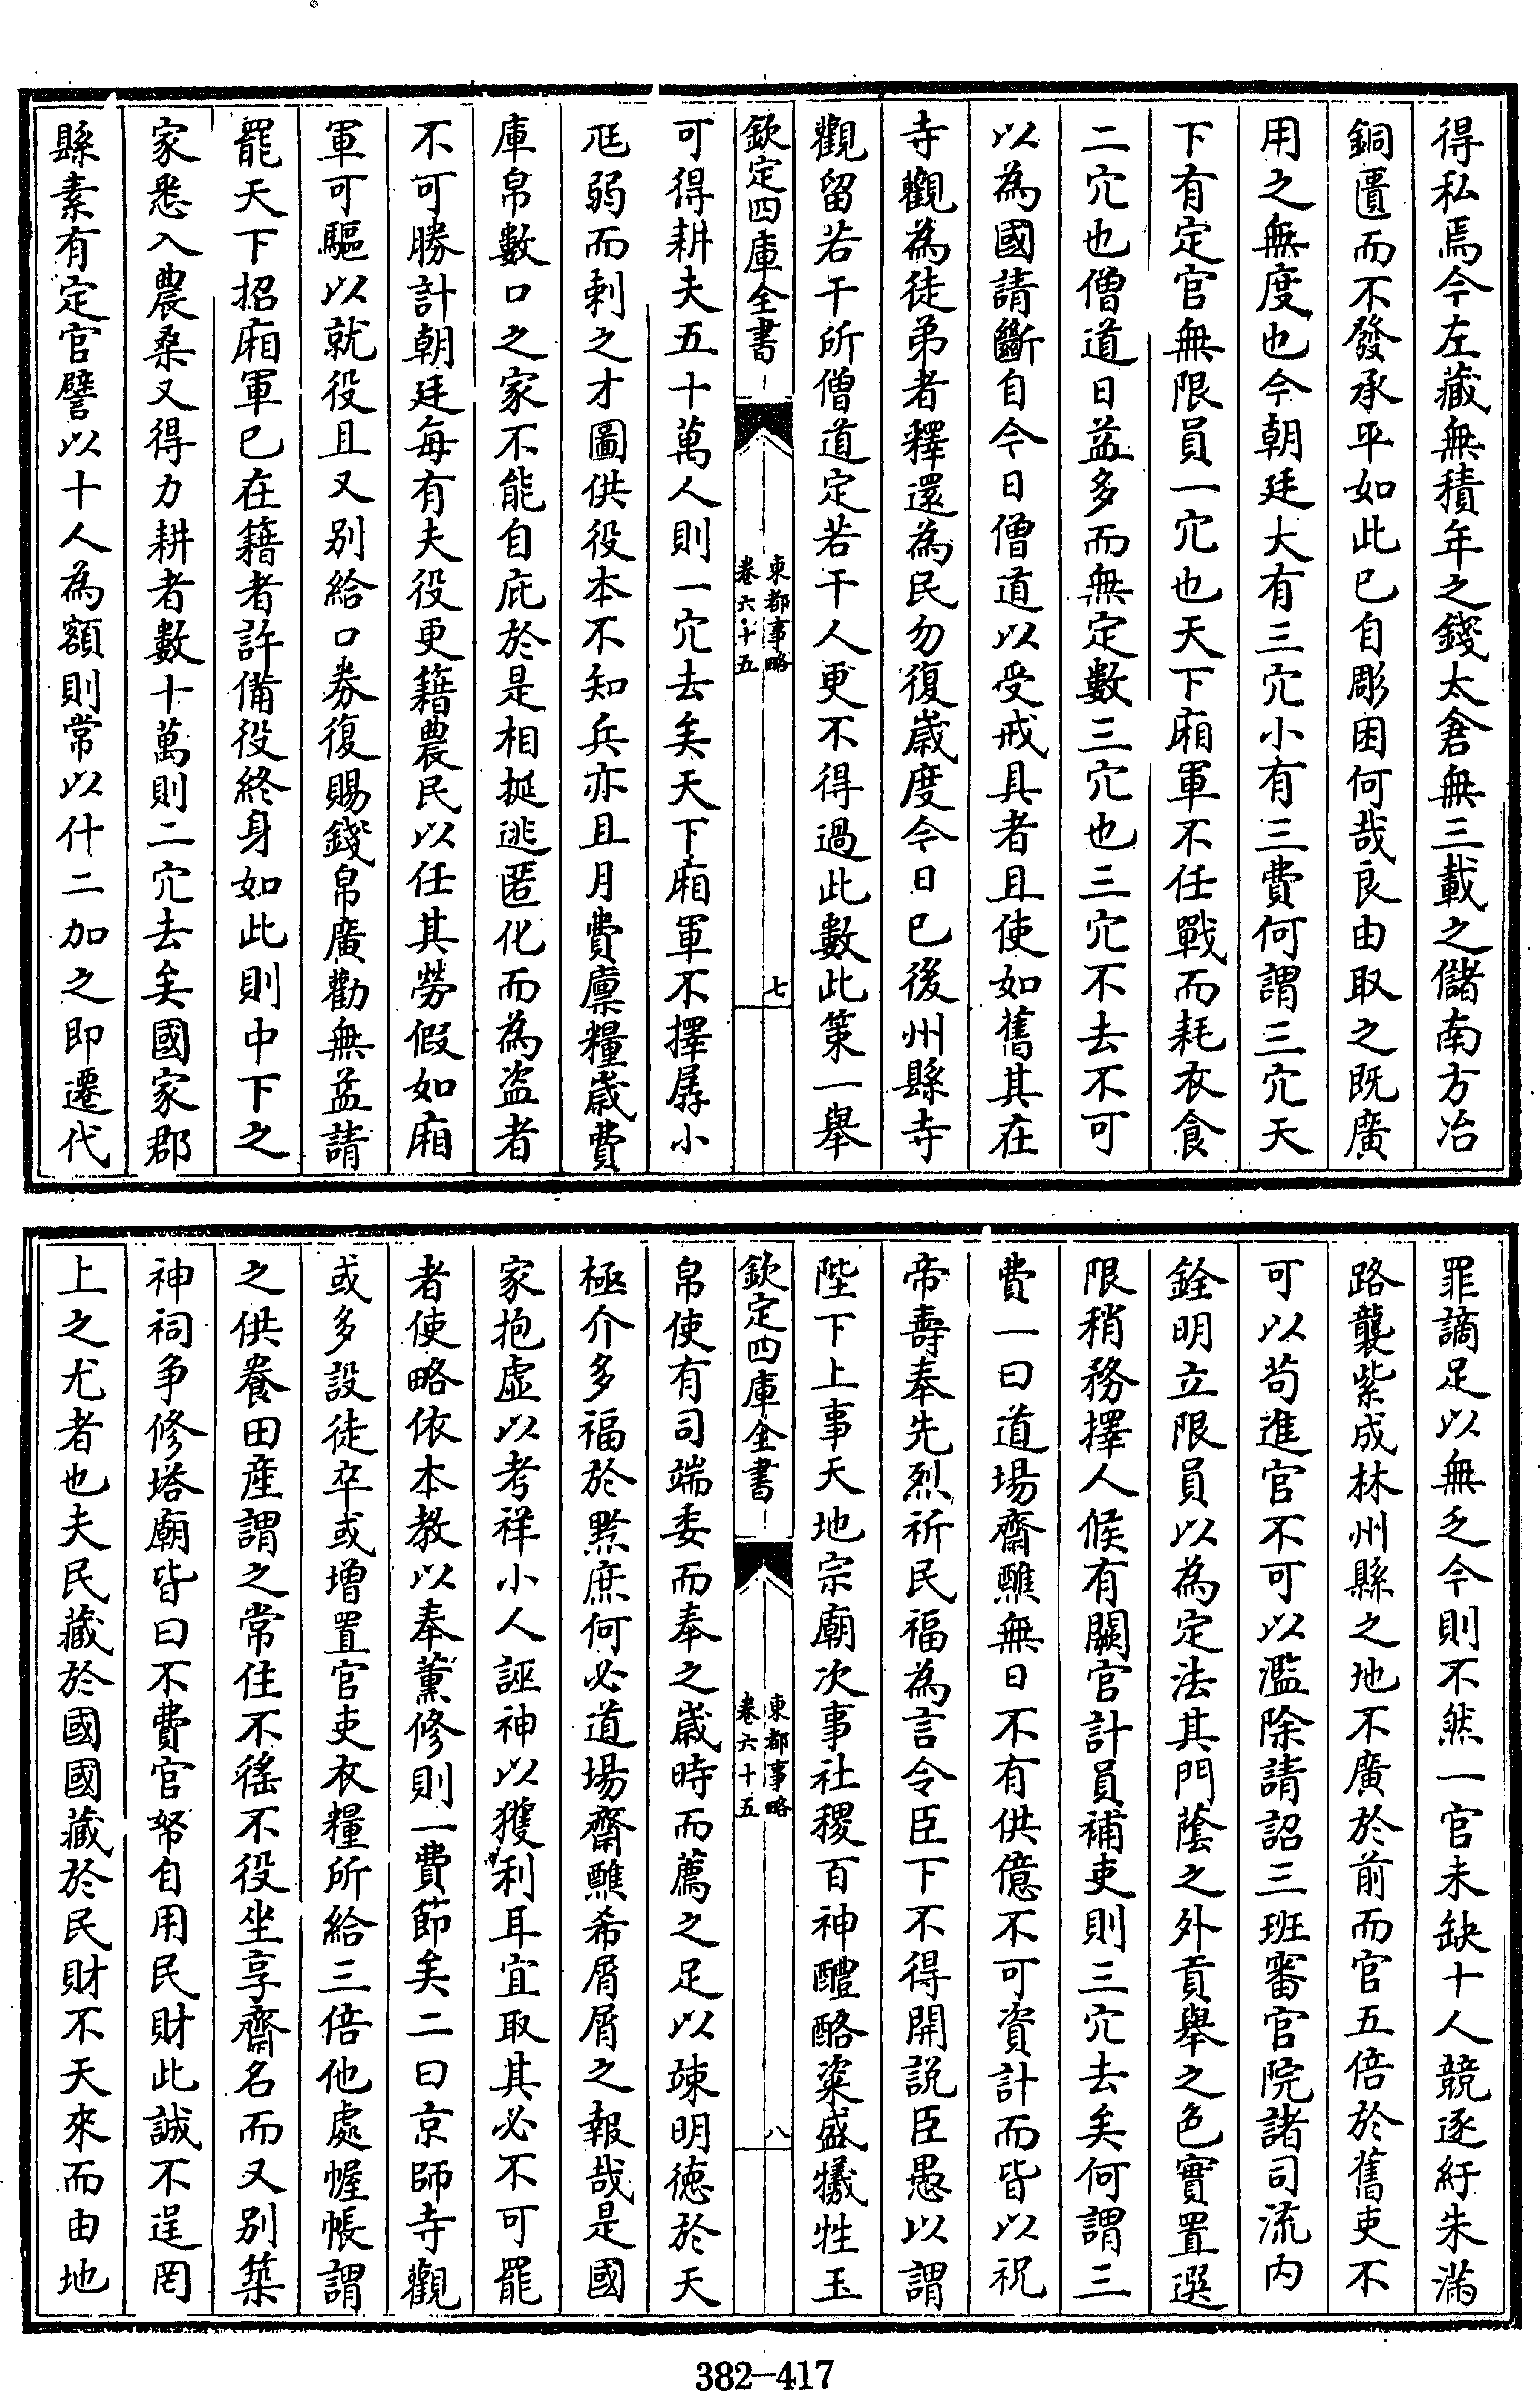 得私焉今左藏無積年之錢太倉無三載之儲南方冶
銅匱而不發承平如此已自彫困何哉良由取之既廣
用之無度也今朝廷大有三穴小有三費何謂三穴天
下有定官無限員一穴也天下廂軍不任戰而耗衣食
二穴也僧道日益多而無定數三穴也三穴不去不可
以為國請斷自今日僧道以受戒具者且使如舊其在
寺觀為徒弟者釋還為民勿復歲度今日已後州縣寺
觀留若干所僧道定若干人更不得過此數此策一舉
欽定四庫全書
東都事略
卷六十五
七
可得耕夫五十萬人則一穴去矣天下廂軍不擇孱小
尫弱而刺之才圖供役本不知兵亦且月費廩糧歲費
庫帛數口之家不能自庇於是相挻逃匿化而為盜者
不可勝計朝廷每有夫役更籍農民以任其勞假如廂
軍可驅以就役且又別給口券復賜錢帛廣勸無益請
罷天下招廂軍已在籍者許備役終身如此則中下之
家悉入農桑又得力耕者數十萬則二穴去矣國家郡
縣素有定官譬以十人為額則常以什二加之即遷代
罪謫足以無乏今則不然一官未缺十人競逐紆朱滿
路襲紫成林州縣之地不廣於前而官五倍於舊吏不
可以苟進官不可以濫除請詔三班審官院諸司流內
銓明立限員以為定法其門蔭之外貢舉之色實置選
限稍務擇人候有闕官計員補吏則三穴去矣何謂三
費一曰道場齋醮無日不有供億不可資計而皆以祝
帝壽奉先烈祈民福為言令臣下不得開說臣愚以謂
陛下上事天地宗廟次事社稷百神醴酪粢盛犧牲玉
欽定四庫全書
東都事略
卷六十五
八
帛使有司端委而奉之歲時而薦之足以竦明德於天
極介多福於黙庶何必道場齋醮希屑屑之報哉是國
家抱虛以考祥小人誣神以獲利耳宜取其必不可罷
者使略依本教以奉薰修則一費節矣二曰京師寺觀
或多設徒卒或增置官吏衣糧所給三倍他處幄帳謂
之供養田產謂之常住不徭不役坐享齋名而又別築
神祠争修塔廟皆曰不費官帑自用民財此誠不逞罔
上之尤者也夫民藏於國國藏於民財不天來而由地
382—417